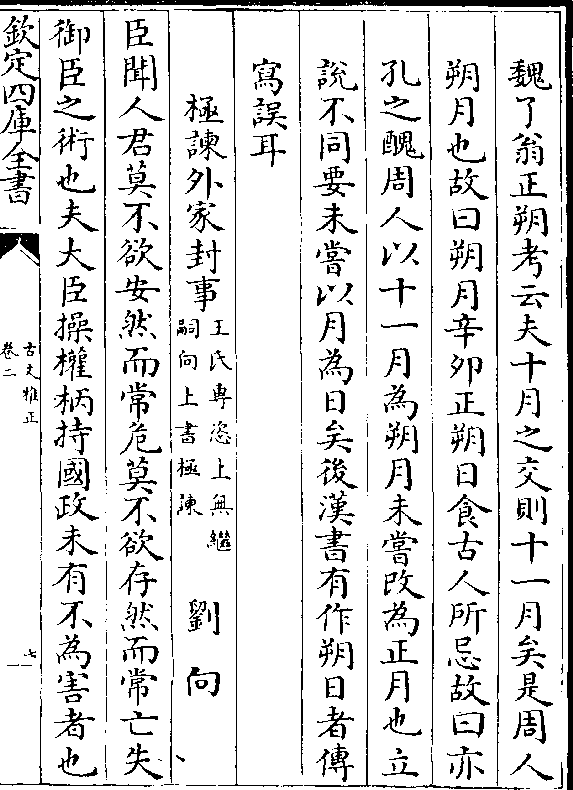 魏了翁正朔考云夫十月之交則十一月矣是周人
朔月也故曰朔月辛卯正朔日食古人所忌故曰亦
孔之醜周人以十一月為朔月未嘗改為正月也立
說不同要未嘗以月為日矣後漢書有作朔日者傳
寫誤耳
極諫外家封事王氏專恣上無繼
嗣向上書極諫 劉向
臣聞人君莫不欲安然而常危莫不欲存然而常亡失
御臣之術也夫大臣操權柄持國政未有不為害者也
欽定四庫全書
古文雅正
卷二
七